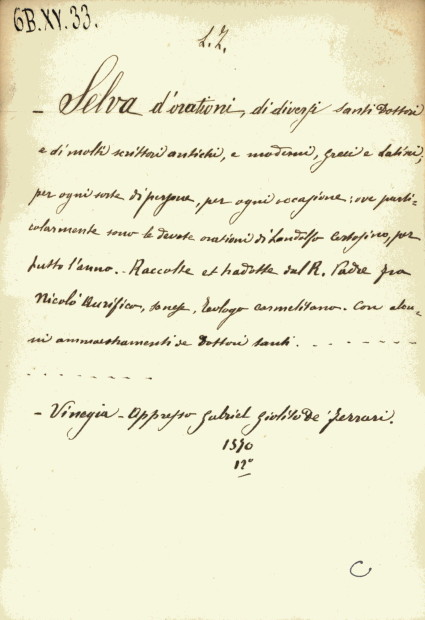 6B.XV.33.
L.Z.
- Selva d'orationi, di diversi santi Dottori
e di molti scrittori antichi, e moderni, greci e latini;
per ogni sorte di persone, per ogni occasione: ove parti-
colarmente sono le devote orationi di Landolfo Certosino, per
tutto l'anno. - Raccolte et tradotte dal R. Padre fra
Nicolò Aurifico, sanese, Teologo carmelitano. Con alcu-
ni ammaestramenti de Dottori santi. - - - - - - -
- - - - - - - -
- Vinegia - Appresso Gabriel Giolito de' Ferrari.
1570
12°
C